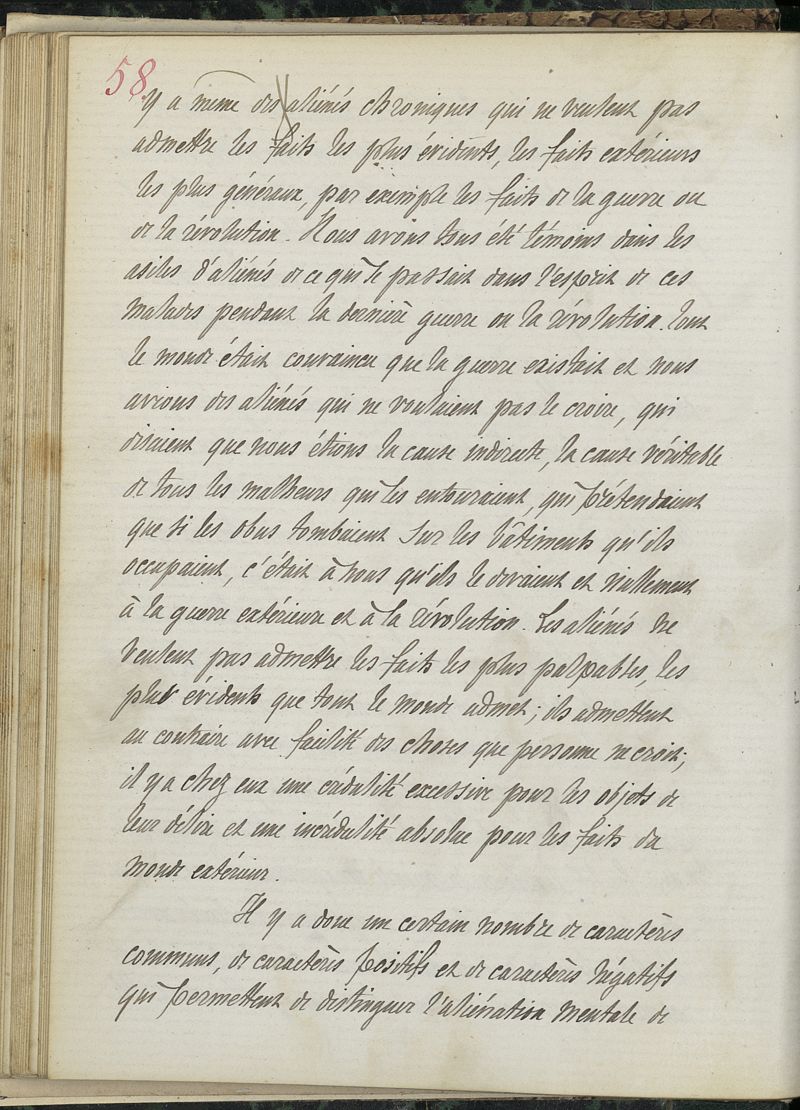 58
y a même des aliénés chroniques qui ne veulent pas
admettre les faits les plus évidents, les faits extérieurs
les plus généraux, par exemple les faits de la guerre ou
de la révolution. Nous avons tous été témoins dans les
asiles d'aliénés de ce qui se passait dans l'esprit de ces
malades pendant la dernière guerre ou la révolution. Tout
le monde était convaincu que la guerre existait et nous
avions des aliénés qui ne voulaient pas le croire, qui
disaient que nous étions la cause indirecte, la cause véritable
de tous les malheurs qui les entouraient, qui prétendaient
que si les obus tombaient sur les bâtiments qu'ils
occupaient, c'était à nous qu'ils le devaient et nullement
à la guerre extérieure et à la révolution. Les aliénés ne
veulent pas admettre les faits les plus palpables, les
plus évidents que tout le monde admet; ils admettent
au contraire avec facilité des choses que personne ne croit;
il y a chez eux une crédulité excessive pour les objets de
leur délire et une incrédulité absolue pour les faits du
monde extérieur.
Il y a donc un certain nombre de caractères
communs, de caractères positifs et de caractères négatifs
qui permettent de distinguer l'aliénation mentale de